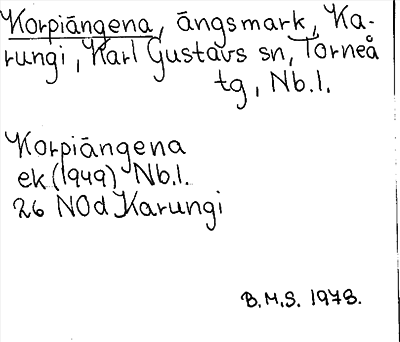 Korpiängena, ängsmark, Ka-
rungi, Karl Gustavs sn, Torneå
tg, Nb.l.
Korpiängena
ek (1949) Nb.l.
26 NOd Karungi
B.M.S. 1973.